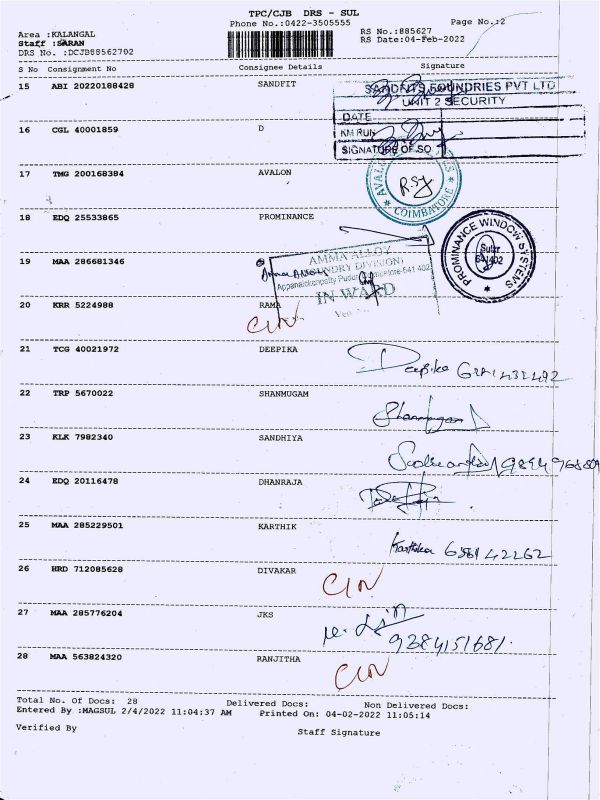 TPC/CJB DRS - SUL
Phone No.:0422-3505555 Page No.:2
Area :KALANGAL RS No.:885627
Staff :SARAN RS Date:04-Feb-2022
DRS No. :DCJB88562702
S No Consignment No Consignee Details Signature
15 ABI 20220188428 SANDFIT
SANDFITS FOUNDRIES PVT LTD
UNIT 2 SECURITY
DATE
16 CGL 40001859 D
KM RUN
SIGNATURE OF SO
17 TMG 200168384 AVALON
COIMBATORE
18 EDQ 25533865 PROMINANCE
PROMINANCE WINDOW SYSTEMS
Sulur
641402
19 MAA 286681346
AMMA ALLOY
(FOUNDRY DIVISION)
IN WARD
20 KRR 5224988 RAMA
21 TCG 40021972 DEEPIKA
Deepika
22 TRP 5670022 SHANMUGAM
Shanmugam
23 KLK 7982340 SANDHIYA
24 EDQ 20116478 DHANRAJA
25 MAA 285229501 KARTHIK
Karthika
26 HRD 712085628 DIVAKAR
27 MAA 285776204 JKS
9384151681.
28 MAA 563824320 RANJITHA
Total No. Of Docs: 28 Delivered Docs: Non Delivered Docs:
Entered By :MAGSUL 2/4/2022 11:04:37 AM Printed On: 04-02-2022 11:05:14
Verified By Staff Signature